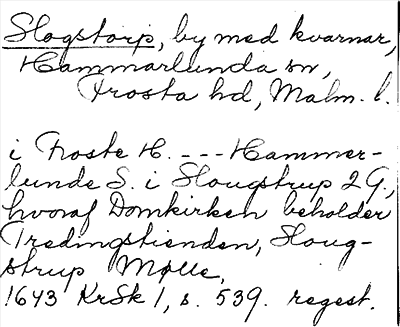 Slogstorp, by med kvarnar,
Hammarlunda sn,
Frosta hd, Malm. l.
i Froste H. --- Hammer-
lunde S. i Slougstrup 2 G.,
hvoraf Domkirken beholder
Tredingstienden, Sloug-
strup Mølle,
1643 KrSk 1, s. 539. regest.